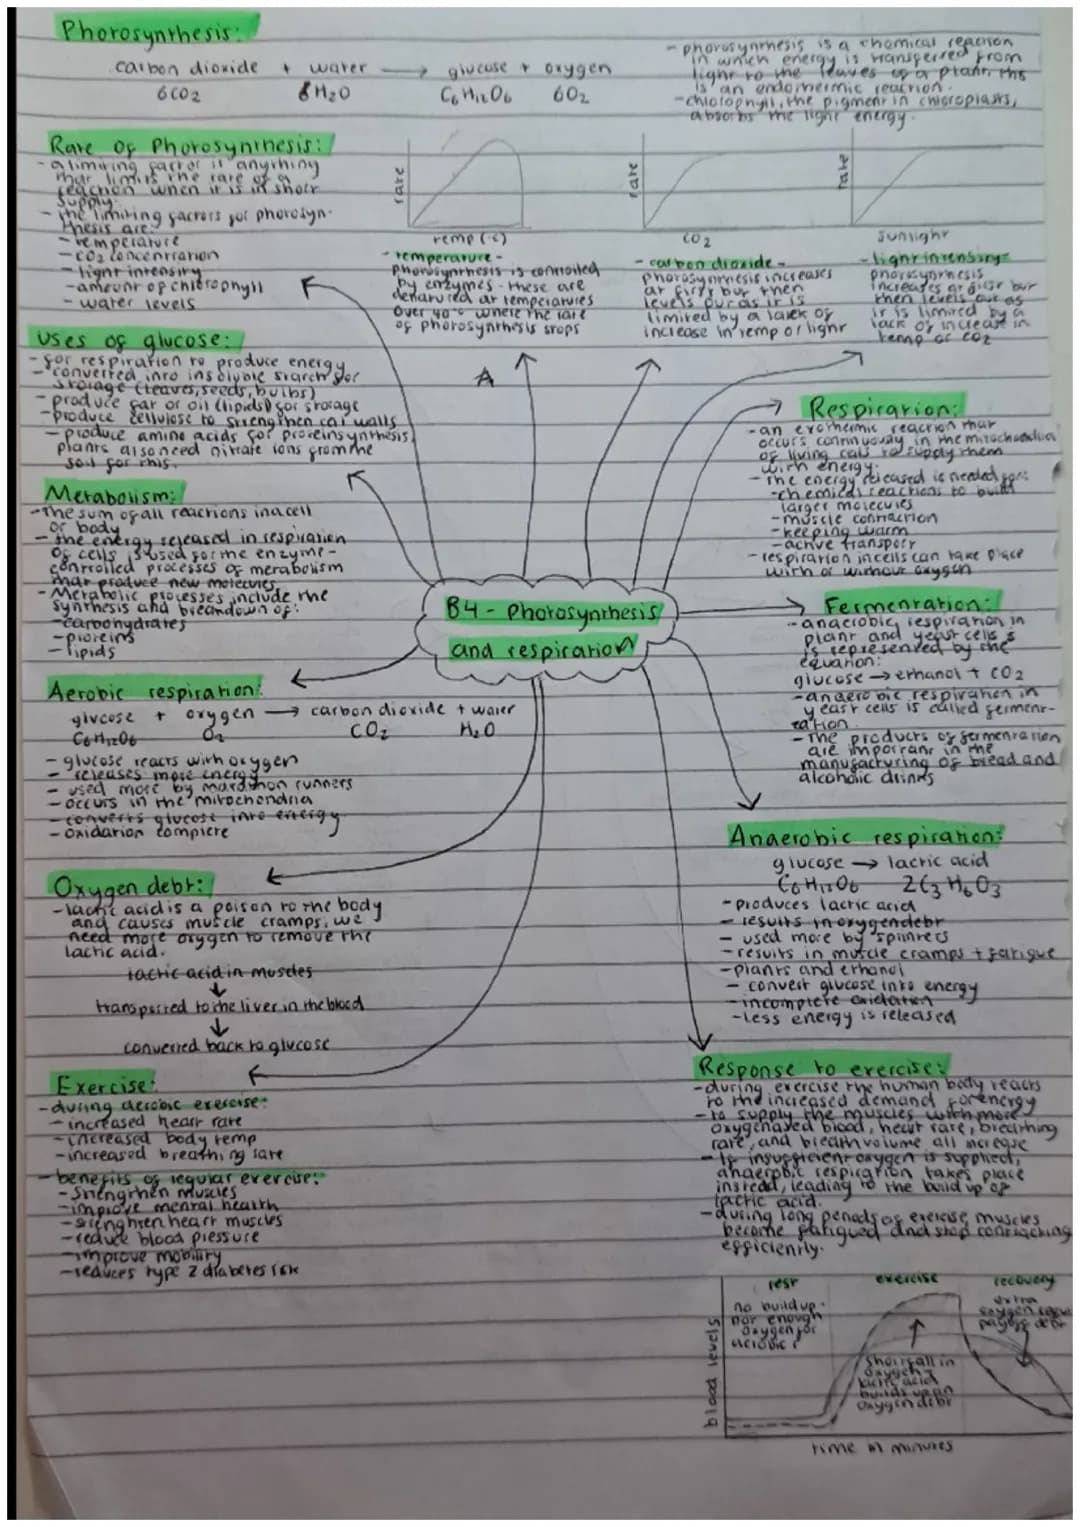 Photosynthesis:
carbon dioxide + water → glucose + oxygen
6CO2 6H2O C6H12O6 6O2
- photosynthesis is a chemical reaction
in which energy is transferred from
light to the leaves of a plant, this
is an endothermic reaction.
- chlorophyll, the pigment in chloroplasts,
absorbs the light energy.
Rate of Photosynthesis:
- a limiting factor is anything
that limits the rate of a
reaction when it is in short
supply.
- the limiting factors for photosyn-
thesis are:
- temperature
- CO2 concentration
- light intensity
- amount of chlorophyll
- water levels
rate
temp (°c)
rate
CO2
rate
sunlight
- temperature -
photosynthesis is controlled
by enzymes - these are
denatured at temperatures
over 40°c where the rate
of photosynthesis stops
- carbon dioxide -
photosynthesis increases
at first but then
levels out as it is
limited by a lack of
increase in temp or light
- light intensity -
photosynthesis
increases at first but
then levels out as
it is limited by a
lack of increase in
temp or CO2
uses of glucose:
- for respiration to produce energy
- converted into insoluble starch for
storage (leaves, seeds, bulbs)
- produce fat or oil (lipids) for storage
- produce cellulose to strengthen cell walls
- produce amino acids for protein synthesis,
plants also need nitrate ions from the
soil for this.
A
Respiration:
- an exothermic reaction that
occurs continuously in the mitochondria
of living cells to supply them
with energy.
- The energy released is needed for:
- chemical reactions to build
larger molecules
- muscle contraction
- keeping warm
- active transport
- respiration in cells can take place
with or without oxygen
Metabolism:
- The sum of all reactions in a cell
or body
- the energy released in respiration
of cells is used for the enzyme-
controlled processes of metabolism
that produce new molecules
- Metabolic processes include the
synthesis and breakdown of:
- carbohydrates
- proteins
- lipids
B4 - Photosynthesis
and respiration
Fermentation:
- anaerobic respiration in
plant and yeast cells
is represented by the
equation:
glucose → ethanol + CO2
- anaerobic respiration in
yeast cells is called ferment-
ation.
- The products of fermentation
are important in the
manufacturing of bread and
alcoholic drinks
Aerobic respiration:
glucose + oxygen → carbon dioxide + water
C6H12O6 O2 CO2 H2O
- glucose reacts with oxygen
- releases more energy
- used more by marathon runners
- occurs in the mitochondria
- converts glucose into energy
- oxidation complete
Anaerobic respiration:
glucose → lactic acid
C6H12O6 2C3H6O3
- produces lactic acid
- results in oxygen debt
- used more by sprinters
- results in muscle cramps + fatigue
- plants and ethanol
- convert glucose into energy
- incomplete oxidation
- less energy is released
Oxygen debt:
- lactic acid is a poison to the body
and causes muscle cramps, we
need more oxygen to remove the
lactic acid.
lactic acid in muscles
↓
transported to the liver in the blood
↓
converted back to glucose
Exercise:
- during aerobic exercise:
- increased heart rate
- increased body temp
- increased breathing rate
- benefits of regular exercise:
- strengthen muscles
- improve mental health
- strenghten heart muscles
- reduce blood pressure
- improve mobility
- reduces type 2 diabetes risk
Response to exercise:
- during exercise the human body reacts
to the increased demand for energy
- to supply the muscles with more
oxygenated blood, heart rate, breathing
rate, and breath volume all increase
- If insufficient oxygen is supplied,
anaerobic respiration takes place
instead, leading to the build up of
lactic acid.
- during long periods of exercise, muscles
become fatigued and stop contracting
efficiently.
rest exercise recovery
no buildup.
not enough
oxygen for
aerobic r
shortfall in
oxygen -
lactic acid
builds up an
oxygen debt
extra
oxygen
pays off debt
blood levels
time in minutes